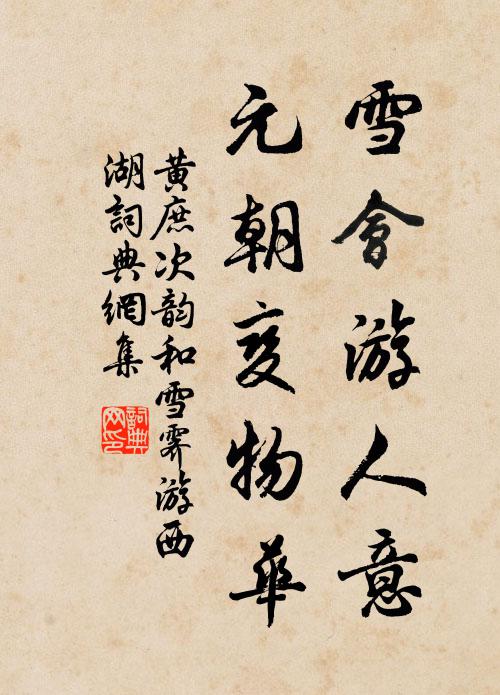 雪會游人意
元朝变物華
黃庶次韵和雪霽游西
湖詞典網集
詞典网印